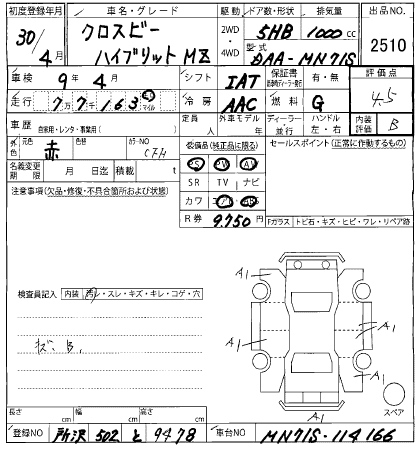 初度登録年月 車名・グレード 駆動 ドア数・形状 排気量 出品NO.
30/4月 クロスビー ハイブリット MZ 2WD・4WD 5HB 1000cc 2510
型式 DAA-MN71S
車検 9年4月 シフト IAT 保証書 有・無 評価点
走行 7万7千163 km マイル 冷房 AAC 燃料 G 4.5
車歴 自家用・レンタ・事業用( ) 定員 人 外車モデル 年 ディーラー・並行 ハンドル 左・右 内装評価 B
外色 元色 赤 色替 カラーNO 装備品(純正品に限る) セールスポイント(正常に動作するもの)
名義変更期限 月 日迄 積載 t PS PW AW
注意事項(欠品・修復・不具合箇所および状態) SR TV ナビ
カワ エアB ABS
R券 9,750円
Fガラス トビ石・キズ・ヒビ・ワレ・リペア跡
A1
A1
検査員記入 内装 汚・スレ・キズ・キレ・コゲ・穴
A1
A1
A1
A1
スペア
長さ cm 幅 cm 高さ cm
登録NO 所沢 502 と 9478 車台NO MN71S-114166